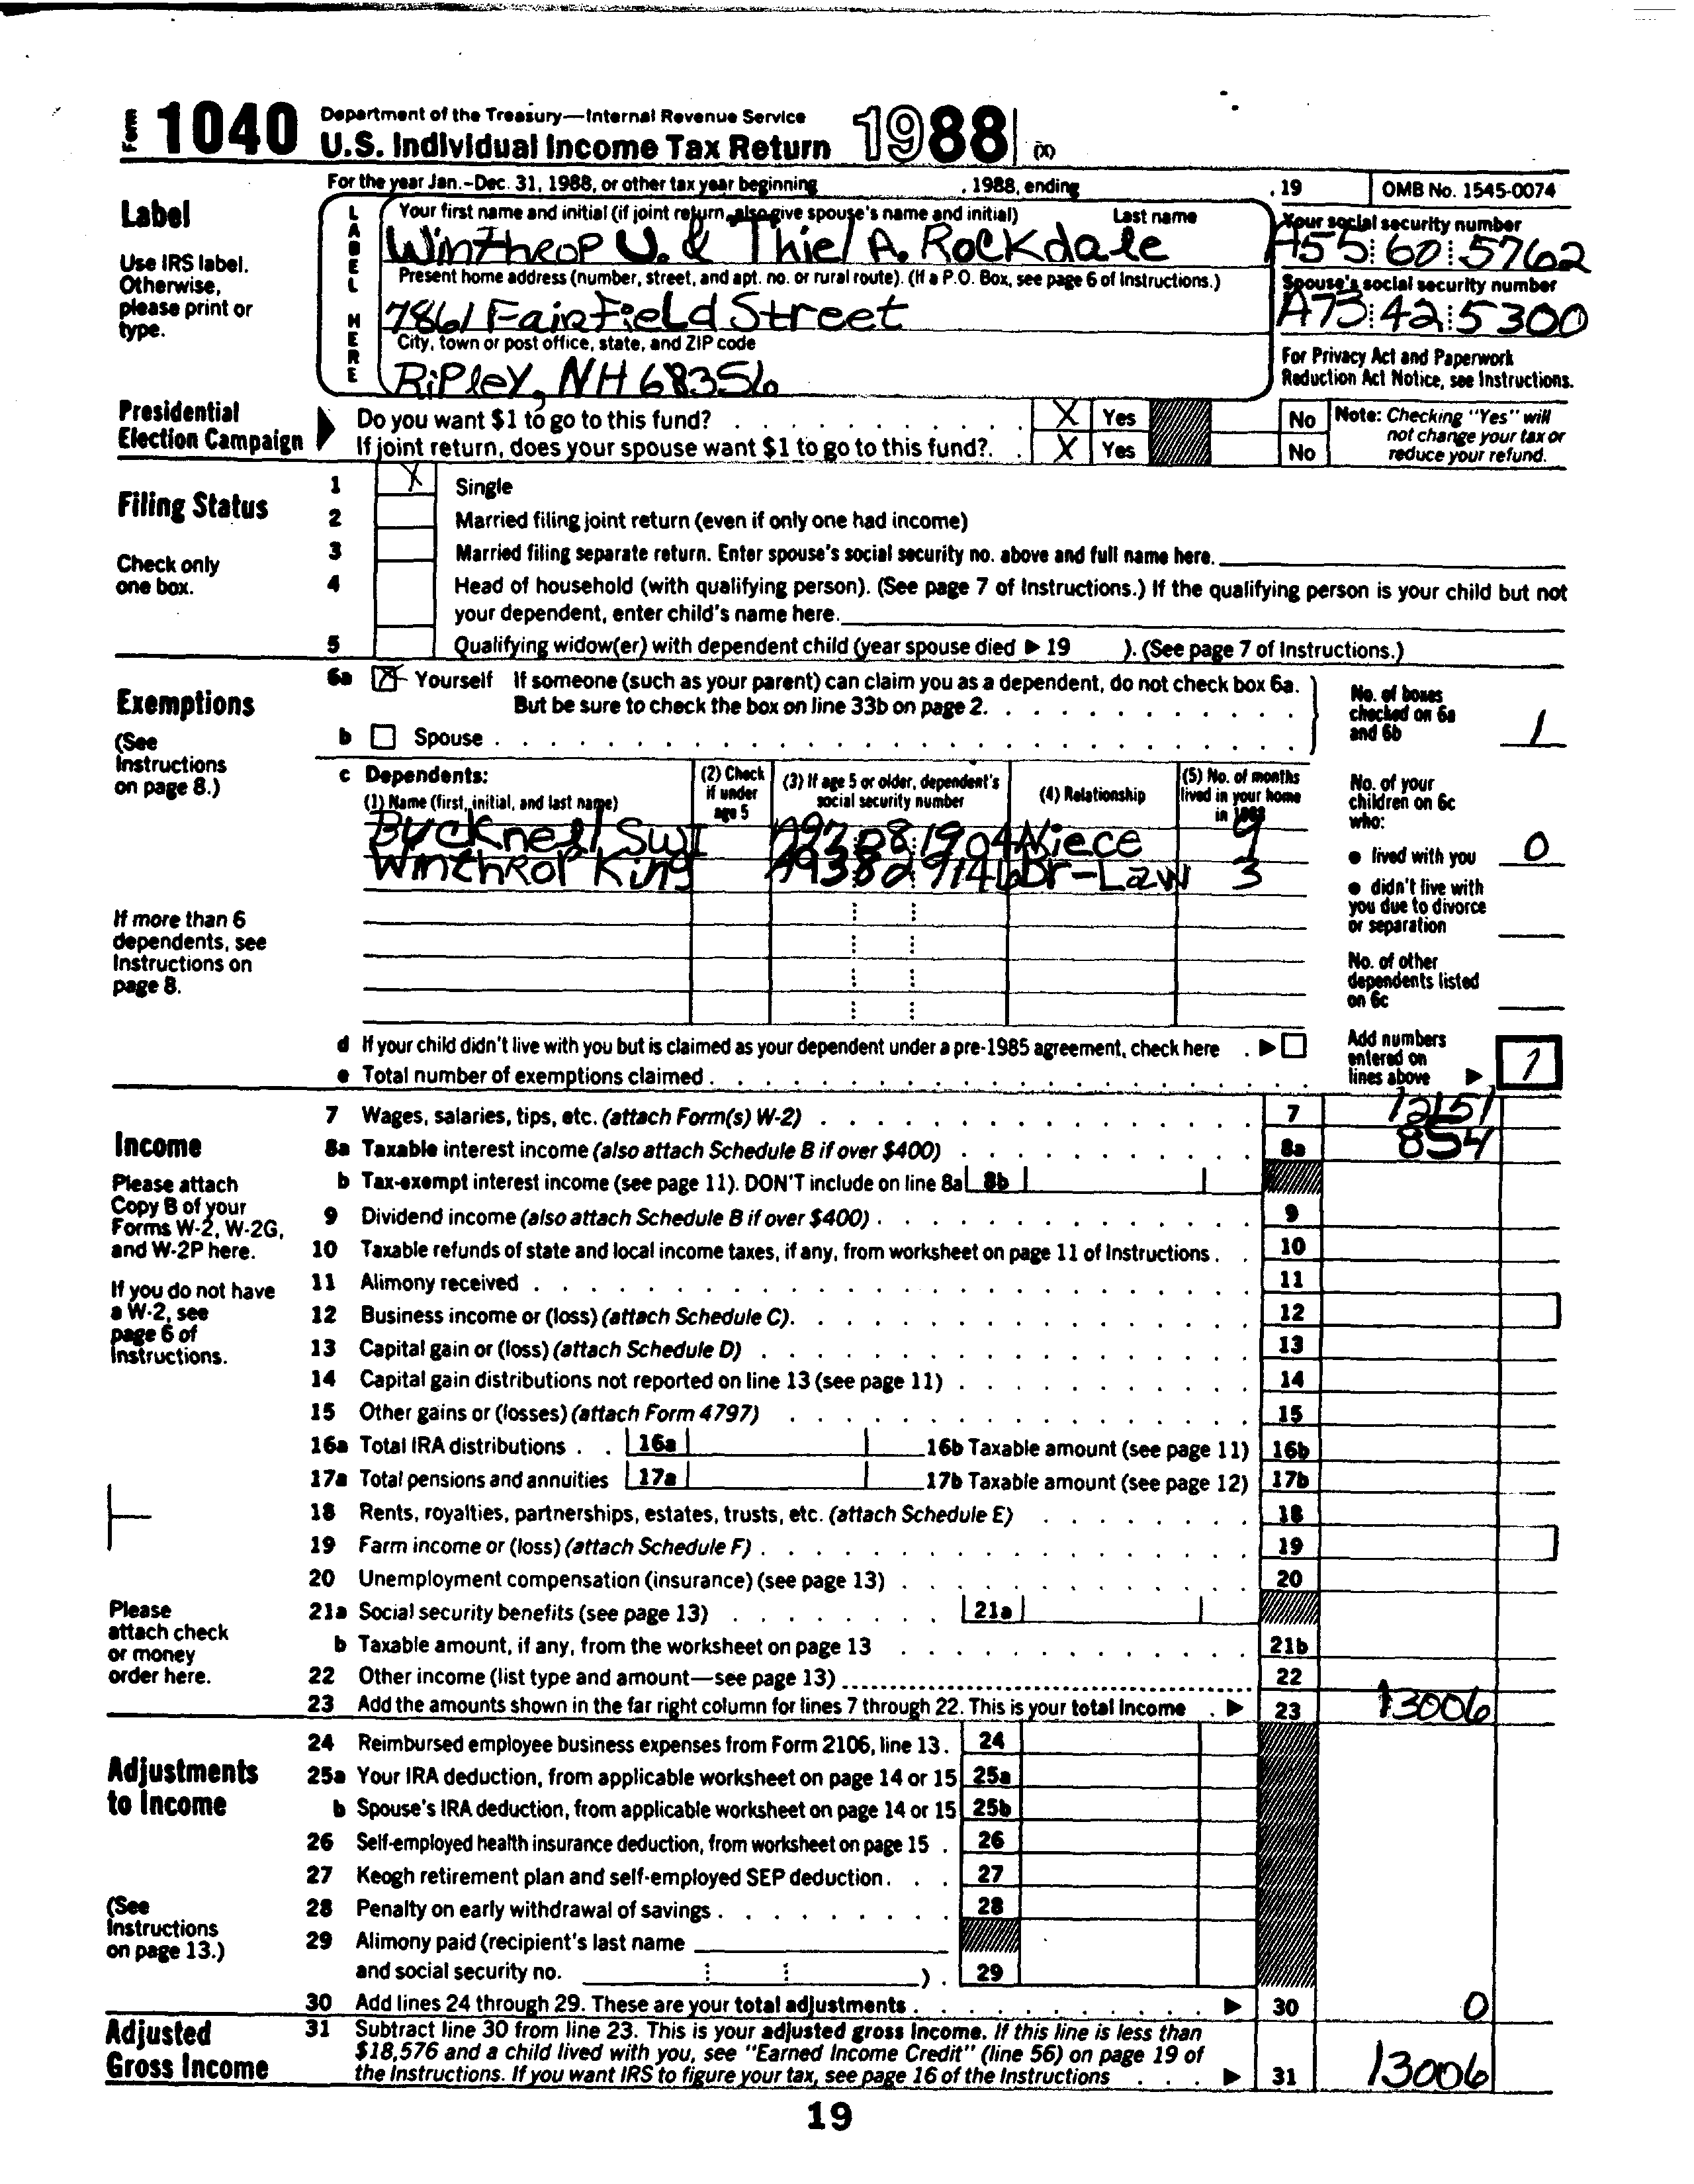 Form 1040 Department of the Treasury—Internal Revenue Service
U.S. Individual Income Tax Return 1988 (X)
For the year Jan.-Dec. 31, 1988, or other tax year beginning , 1988, ending , 19 OMB No. 1545-0074
Label
Use IRS label.
Otherwise,
please print or
type.
LABEL HERE
Your first name and initial (if joint return, also give spouse's name and initial) Last name
Winthrop U. & Thiel A. Rockdale
Your social security number
A55 60 5762
Present home address (number, street, and apt. no. or rural route). (If a P.O. Box, see page 6 of Instructions.)
7861 Fairfield Street
Spouse's social security number
A73 42 5300
City, town or post office, state, and ZIP code
Ripley, NH 68356
For Privacy Act and Paperwork
Reduction Act Notice, see Instructions.
Presidential
Election Campaign
Do you want $1 to go to this fund? X Yes No
If joint return, does your spouse want $1 to go to this fund? X Yes No
Note: Checking "Yes" will
not change your tax or
reduce your refund.
Filing Status
Check only
one box.
1 X Single
2 Married filing joint return (even if only one had income)
3 Married filing separate return. Enter spouse's social security no. above and full name here.
4 Head of household (with qualifying person). (See page 7 of Instructions.) If the qualifying person is your child but not
your dependent, enter child's name here.
5 Qualifying widow(er) with dependent child (year spouse died ▶ 19 ). (See page 7 of Instructions.)
Exemptions
(See
Instructions
on page 8.)
6a X Yourself If someone (such as your parent) can claim you as a dependent, do not check box 6a.
But be sure to check the box on line 33b on page 2.
b Spouse
No. of boxes
checked on 6a
and 6b 1
c Dependents:
(1) Name (first, initial, and last name)
(2) Check
if under
age 5
(3) If age 5 or older, dependent's
social security number
(4) Relationship
(5) No. of months
lived in your home
in 1988
Bucknell Swi Niece 9
Winthrop King Br-Law 3
If more than 6
dependents, see
Instructions on
page 8.
No. of your
children on 6c
who:
● lived with you 0
● didn't live with
you due to divorce
or separation
No. of other
dependents listed
on 6c
d If your child didn't live with you but is claimed as your dependent under a pre-1985 agreement, check here ▶
e Total number of exemptions claimed
Add numbers
entered on
lines above ▶ 1
Income
Please attach
Copy B of your
Forms W-2, W-2G,
and W-2P here.
If you do not have
a W-2, see
page 6 of
Instructions.
Please
attach check
or money
order here.
7 Wages, salaries, tips, etc. (attach Form(s) W-2) 7 12151
8a Taxable interest income (also attach Schedule B if over $400) 8a 854
b Tax-exempt interest income (see page 11). DON'T include on line 8a 8b
9 Dividend income (also attach Schedule B if over $400) 9
10 Taxable refunds of state and local income taxes, if any, from worksheet on page 11 of Instructions 10
11 Alimony received 11
12 Business income or (loss) (attach Schedule C) 12
13 Capital gain or (loss) (attach Schedule D) 13
14 Capital gain distributions not reported on line 13 (see page 11) 14
15 Other gains or (losses) (attach Form 4797) 15
16a Total IRA distributions 16a 16b Taxable amount (see page 11) 16b
17a Total pensions and annuities 17a 17b Taxable amount (see page 12) 17b
18 Rents, royalties, partnerships, estates, trusts, etc. (attach Schedule E) 18
19 Farm income or (loss) (attach Schedule F) 19
20 Unemployment compensation (insurance) (see page 13) 20
21a Social security benefits (see page 13) 21a
b Taxable amount, if any, from the worksheet on page 13 21b
22 Other income (list type and amount—see page 13) 22
23 Add the amounts shown in the far right column for lines 7 through 22. This is your total income ▶ 23 13006
Adjustments
to Income
(See
Instructions
on page 13.)
24 Reimbursed employee business expenses from Form 2106, line 13. 24
25a Your IRA deduction, from applicable worksheet on page 14 or 15 25a
b Spouse's IRA deduction, from applicable worksheet on page 14 or 15 25b
26 Self-employed health insurance deduction, from worksheet on page 15 26
27 Keogh retirement plan and self-employed SEP deduction 27
28 Penalty on early withdrawal of savings 28
29 Alimony paid (recipient's last name
and social security no. ) . 29
30 Add lines 24 through 29. These are your total adjustments ▶ 30 0
Adjusted
Gross Income
31 Subtract line 30 from line 23. This is your adjusted gross income. If this line is less than
$18,576 and a child lived with you, see "Earned Income Credit" (line 56) on page 19 of
the Instructions. If you want IRS to figure your tax, see page 16 of the Instructions ▶ 31 13006
19